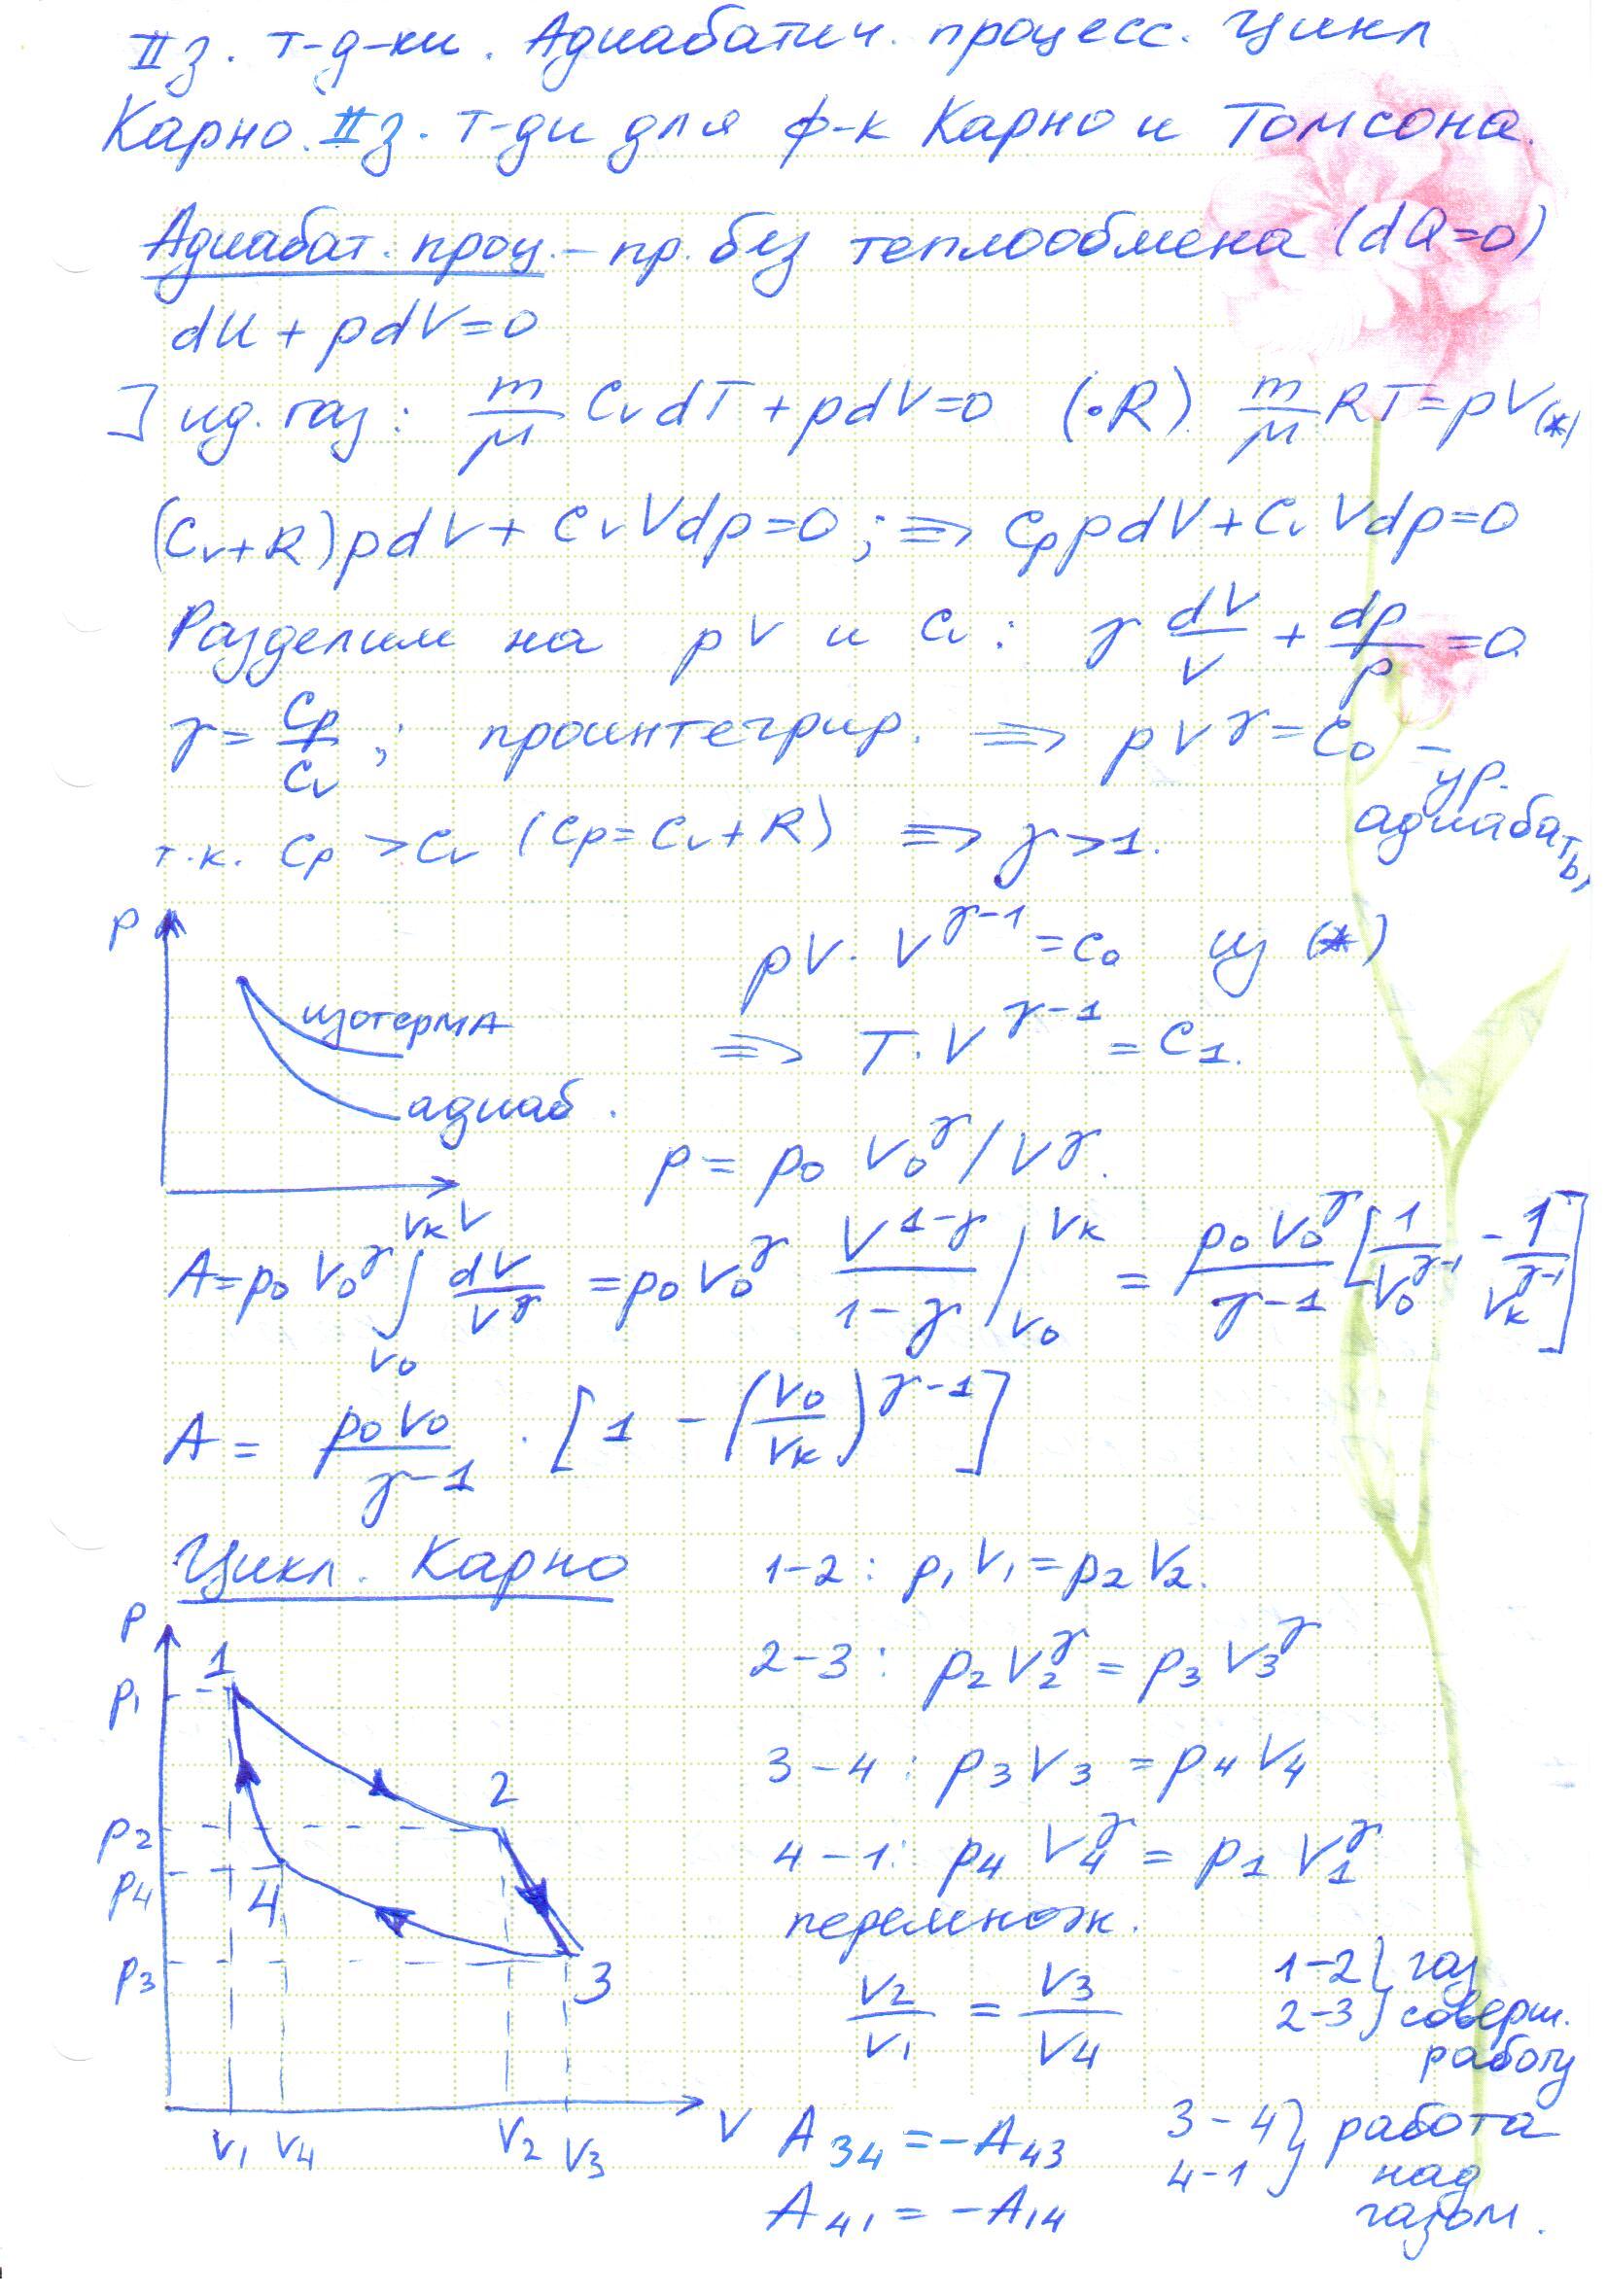 II з. т-д-ки. Адиабатич. процесс. Цикл
Карно. II з. т-ди для ф-к Карно и Томсона.
Адиабат. проц. – пр. без теплообмена (dQ=0)
dU + pdV = 0
] ид. газ: m/μ Cv dT + pdV = 0 (·R) m/μ RT = pV (*)
(Cv+R)pdV + CvVdp = 0; => CppdV + CvVdp = 0
Разделим на pV и Cv: γ dV/V + dp/p = 0.
γ = Cp/Cv; проинтегрир. => pV^γ = C₀ – ур. адиабаты,
т.к. Cp > Cv (Cp = Cv + R) => γ > 1.
p
изотерма
адиаб.
V
pV · V^(γ-1) = C₀ из (*)
=> T · V^(γ-1) = C₁.
p = p₀ V₀^γ / V^γ.
A = p₀ V₀^γ ∫_{V₀}^{Vк} dV/V^γ = p₀ V₀^γ V^(1-γ)/(1-γ) |_{V₀}^{Vк} = p₀ V₀^γ/(γ-1) [1/V₀^(γ-1) - 1/Vк^(γ-1)]
A = p₀V₀/(γ-1) · [1 - (V₀/Vк)^(γ-1)]
Цикл. Карно
p
p₁
p₂
p₄
p₃
1
2
3
4
V₁ V₄ V₂ V₃ V
1-2: p₁V₁ = p₂V₂.
2-3: p₂V₂^γ = p₃V₃^γ
3-4: p₃V₃ = p₄V₄
4-1: p₄V₄^γ = p₁V₁^γ
перемнож.
V₂/V₁ = V₃/V₄
1-2 } газ
2-3 } соверш.
работу
A₃₄ = -A₄₃
A₄₁ = -A₁₄
3-4 } работа
4-1 } над
газом.